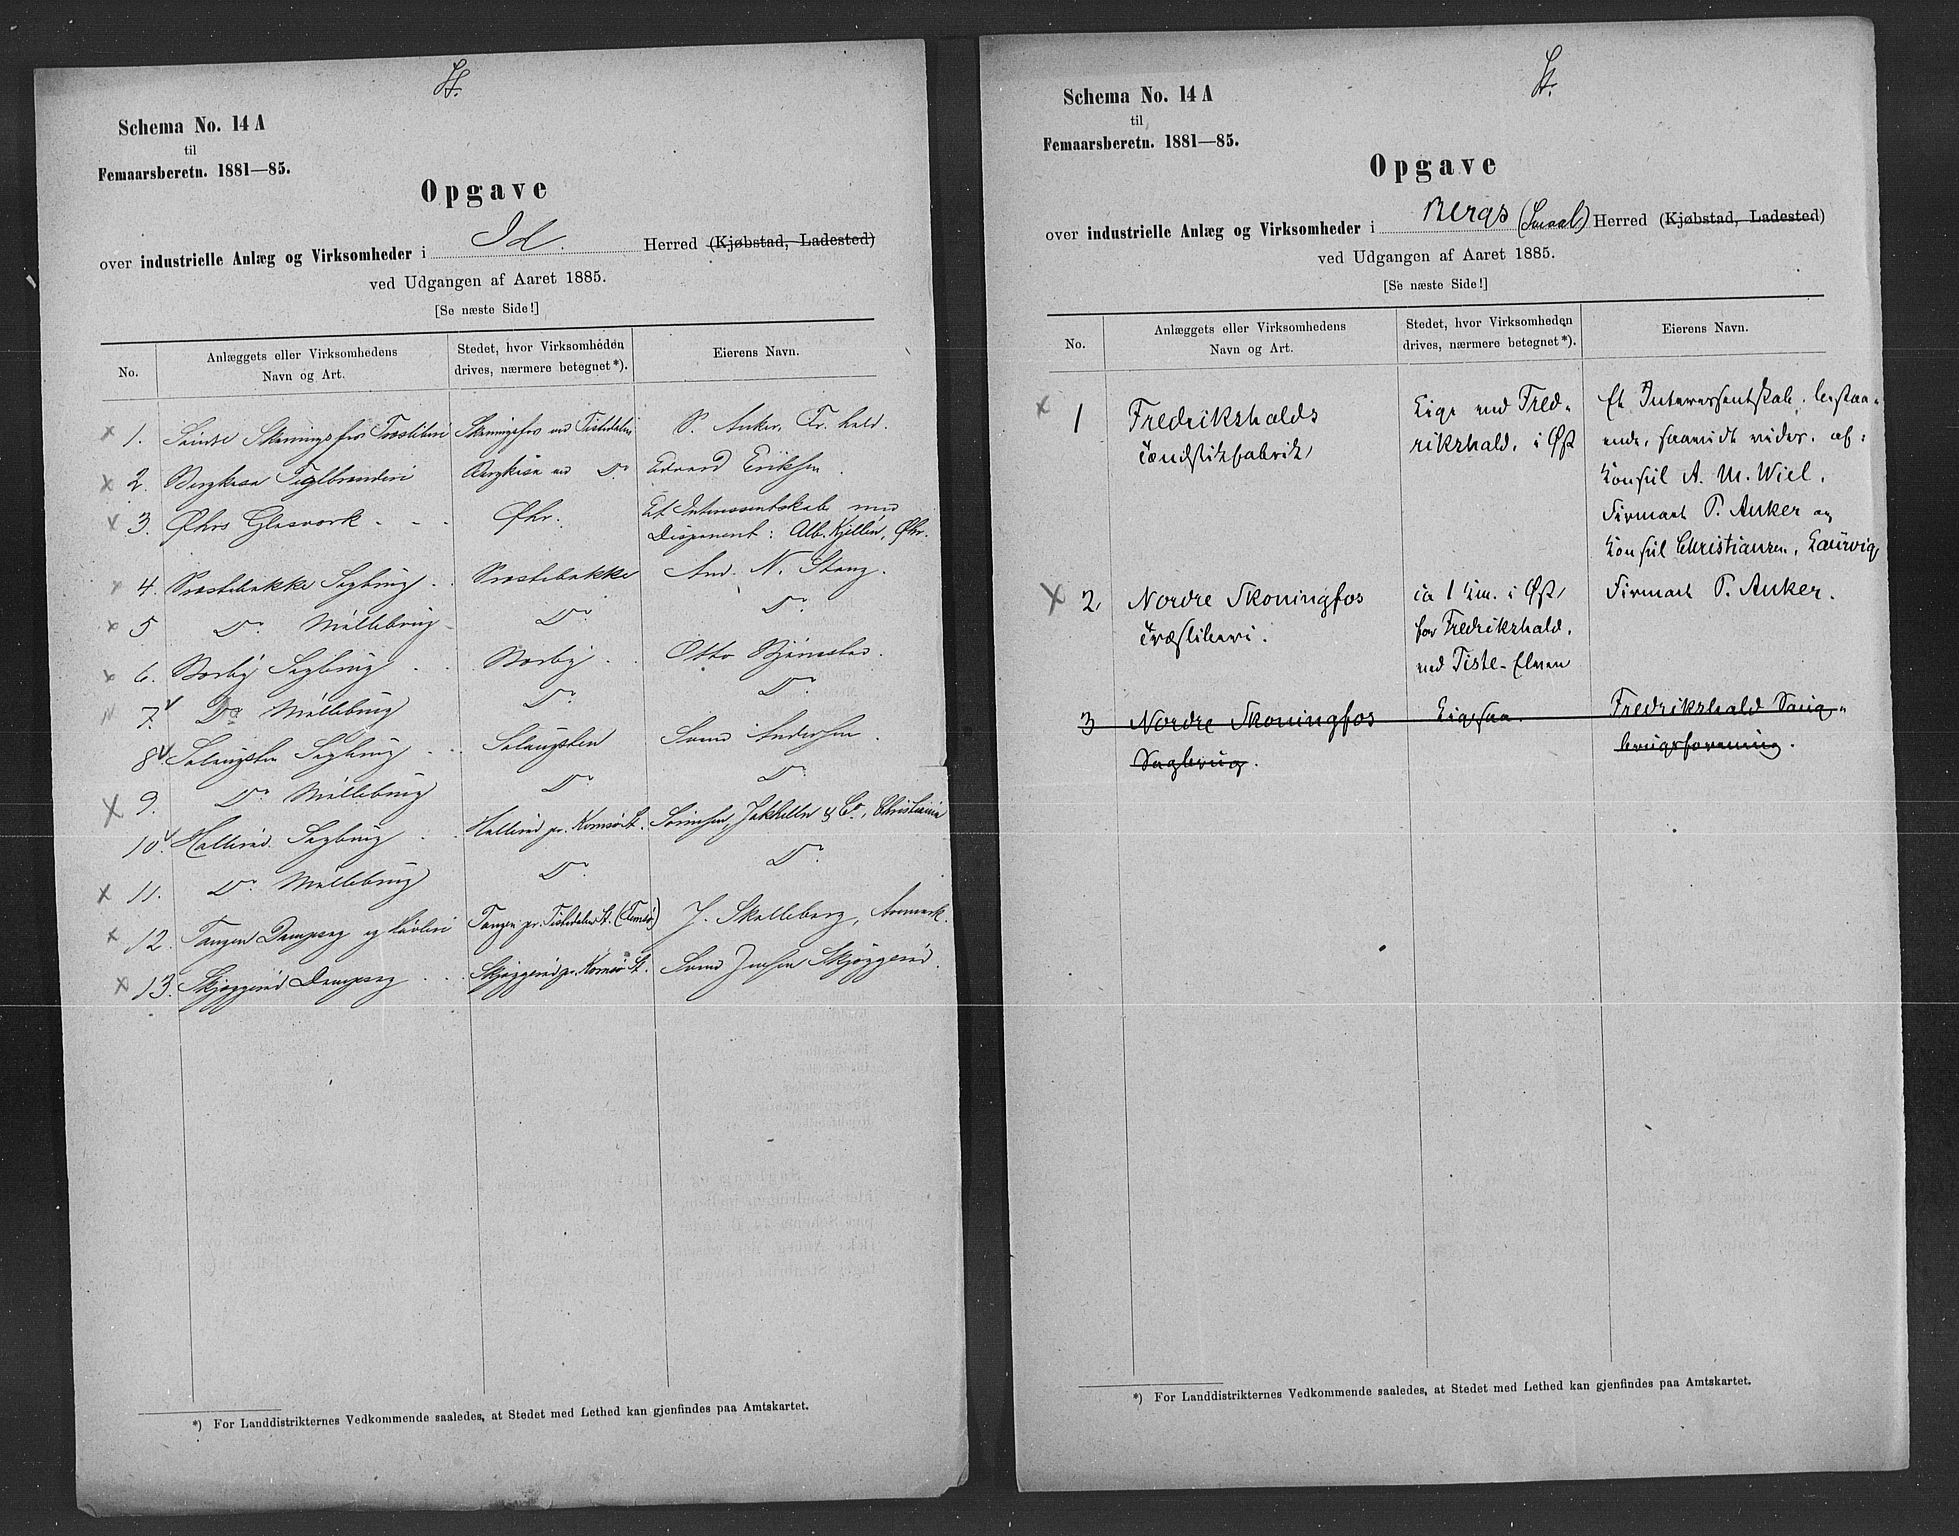 St.
Schema No. 14 A
til
Femaarsberetn. 1881—85.
Opgave
over industrielle Anlæg og Virksomheder i Id. Herred (Kjøbstad, Ladested)
ved Udgangen af Aaret 1885.
[Se næste Side!]
No.
Anlæggets eller Virksomhedens
Navn og Art.
Stedet, hvor Virksomheden
drives, nærmere betegnet*).
Eierens Navn.
1. Søndre Skoningsfos Træsliberi Skoningsfos ved Tistedalen P. Anker, Fr.hald.
2. Teglbrænderi ved Do Edvard Eriksen.
3. Øhrs Glasværk Øhr. Et Interessentskab med
Disponent: Alb. Kjellen, Øhr.
4. Præstebakke Sagbrug Præstebakke And. N. Stang.
5 Do Møllebrug Do Do
6. Sagbrug Otto
7. Do Møllebrug Do Do
8 Sagbrug Svend Andersen
9. Do Møllebrug Do Do
10. Sagbrug pr. Kornsø St. & Co, Christiania
11. Do Møllebrug Do Do
12. Tangen Dampsag og Høvleri Tangen pr. Tistedalen St. J. Aremark.
13. Skjøggerød Dampsag Skjøggerød pr. Kornsø St. Svend Jensen Skjøggerød.
*) For Landdistrikternes Vedkommende saaledes, at Stedet med Lethed kan gjenfindes paa Amtskartet.
St.
Schema No. 14 A
til
Femaarsberetn. 1881—85.
Opgave
over industrielle Anlæg og Virksomheder i Bergs (Smaal) Herred (Kjøbstad, Ladested)
ved Udgangen af Aaret 1885.
[Se næste Side!]
No.
Anlæggets eller Virksomhedens
Navn og Art.
Stedet, hvor Virksomheden
drives, nærmere betegnet*).
Eierens Navn.
1 Fredrikshalds Lige ved Fred- Et Interessentskab, bestaa-
Tændstikfabrik rikshald, i Øst ende, saavidt vides, af:
Konsul A. M. Wiel,
Firmaet P. Anker og
Konsul Christiansen, Laurvig
2 Nordre Skoningfos ca 1 Km. i Øst Firmaet P. Anker.
Træsliberi. for Fredrikshald,
ved Tiste-Elven
3 Nordre Skoningfos Ligesaa. Fredrikshald Saug-
Sagbrug. brugsforening.
*) For Landdistrikternes Vedkommende saaledes, at Stedet med Lethed kan gjenfindes paa Amtskartet.